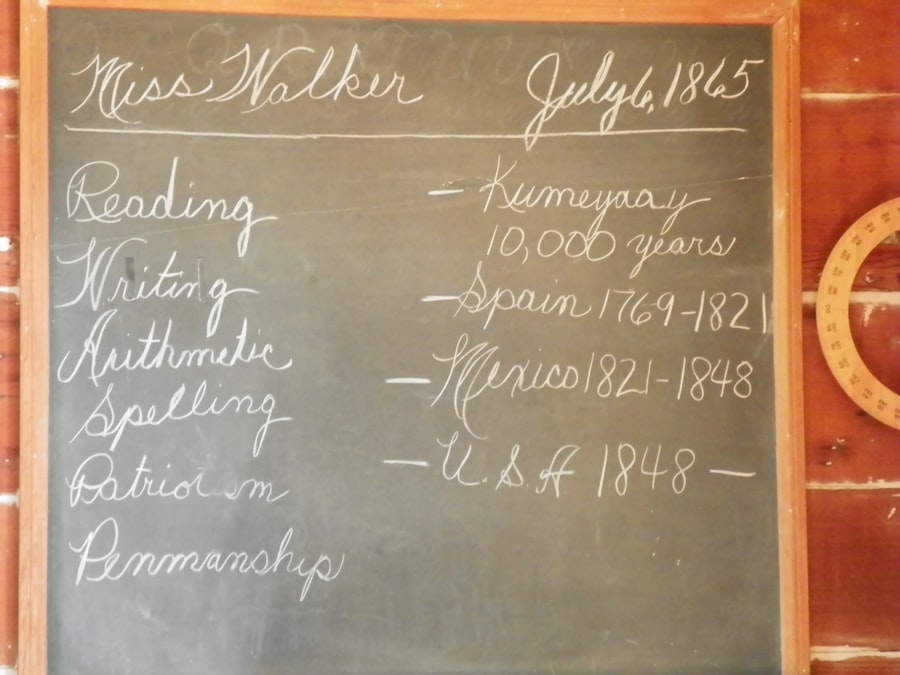 Miss Walker July 6, 1865
Reading
Writing
Arithmetic
Spelling
Penmanship
- Kumeyaay
10,000 years
- Spain 1769-1821
- Mexico 1821-1848
- U.S.A 1848 -